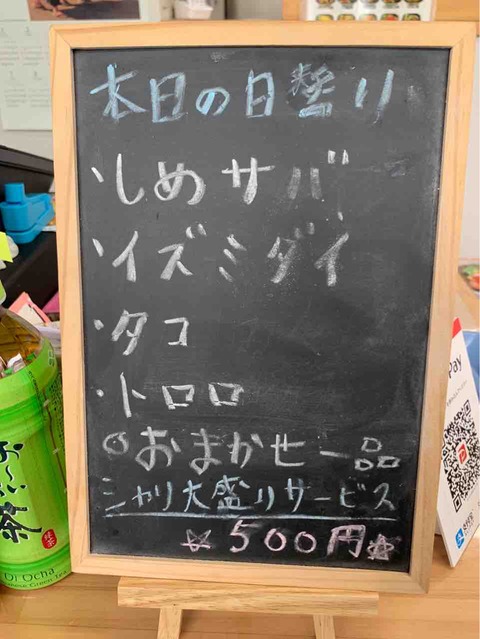 本日の日替り
・しめサバ
・イズミダイ
・タコ
・トロロ
◎おまかせ一品
シャリ大盛りサービス
☆500円☆
お〜いお茶
緑茶
Oi Ocha
Japanese Green Tea
Pay